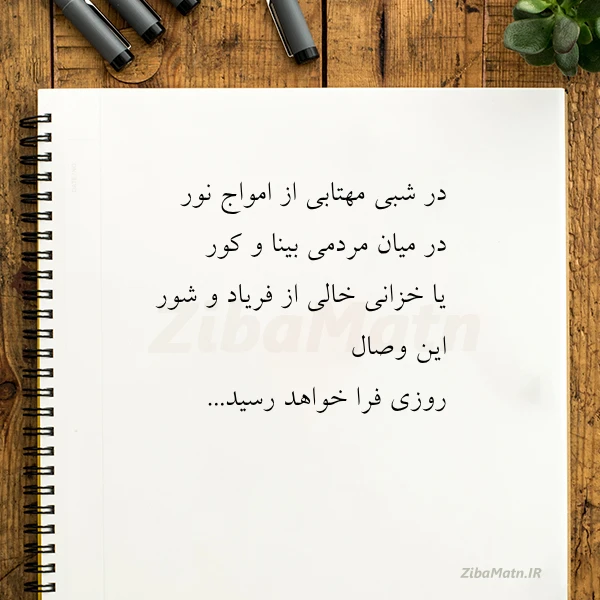 در شبی مهتابی از امواج نور
در میان مردمی بینا و کور
یا خزانی خالی از فریاد و شور
این وصال
روزی فرا خواهد رسید...
ZibaMatn
ZibaMatn.IR